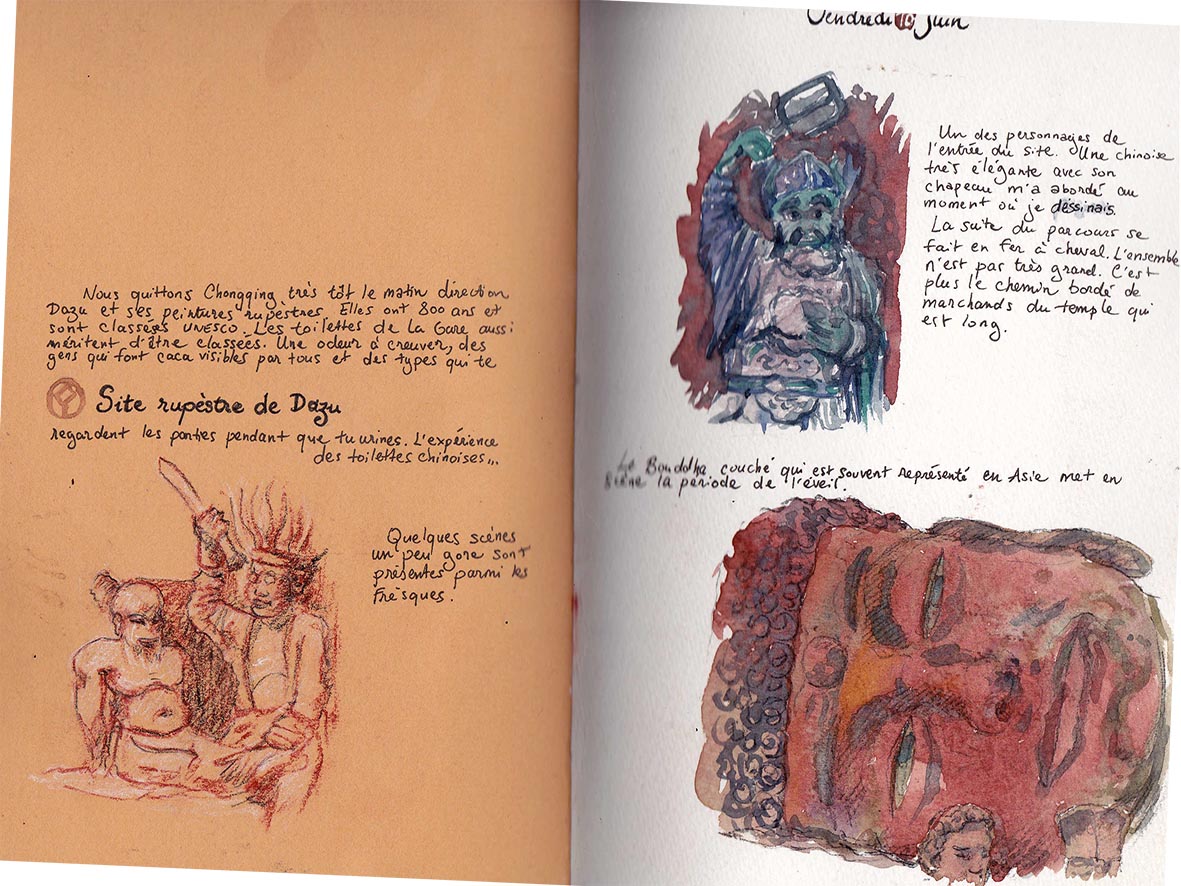 Nous quittons Chongqing très tôt le matin direction
Dazu et ses peintures rupestres. Elles ont 800 ans et
sont classées UNESCO. Les toilettes de la Gare aussi
méritent d'être classées. Une odeur à creuver, des
gens qui font caca visibles par tous et des types qui te
Site rupèstre de Dazu
regardent les parties pendant que tu urines. L'expérience
des toilettes chinoises...
Quelques scènes
un peu gore sont
présentes parmi les
Frèsques.
Vendredi 10 Juin
Un des personnages de
l'entrée du site. Une chinoise
très élégante avec son
chapeau m'a abordé au
moment où je dessinais.
La suite du parcours se
fait en fer à cheval. L'ensemble
n'est par très grand. C'est
plus le chemin bordé de
marchands du temple qui
est long.
Le Bouddha couché qui est souvent représenté en Asie met en
Scène la période de l'éveil.